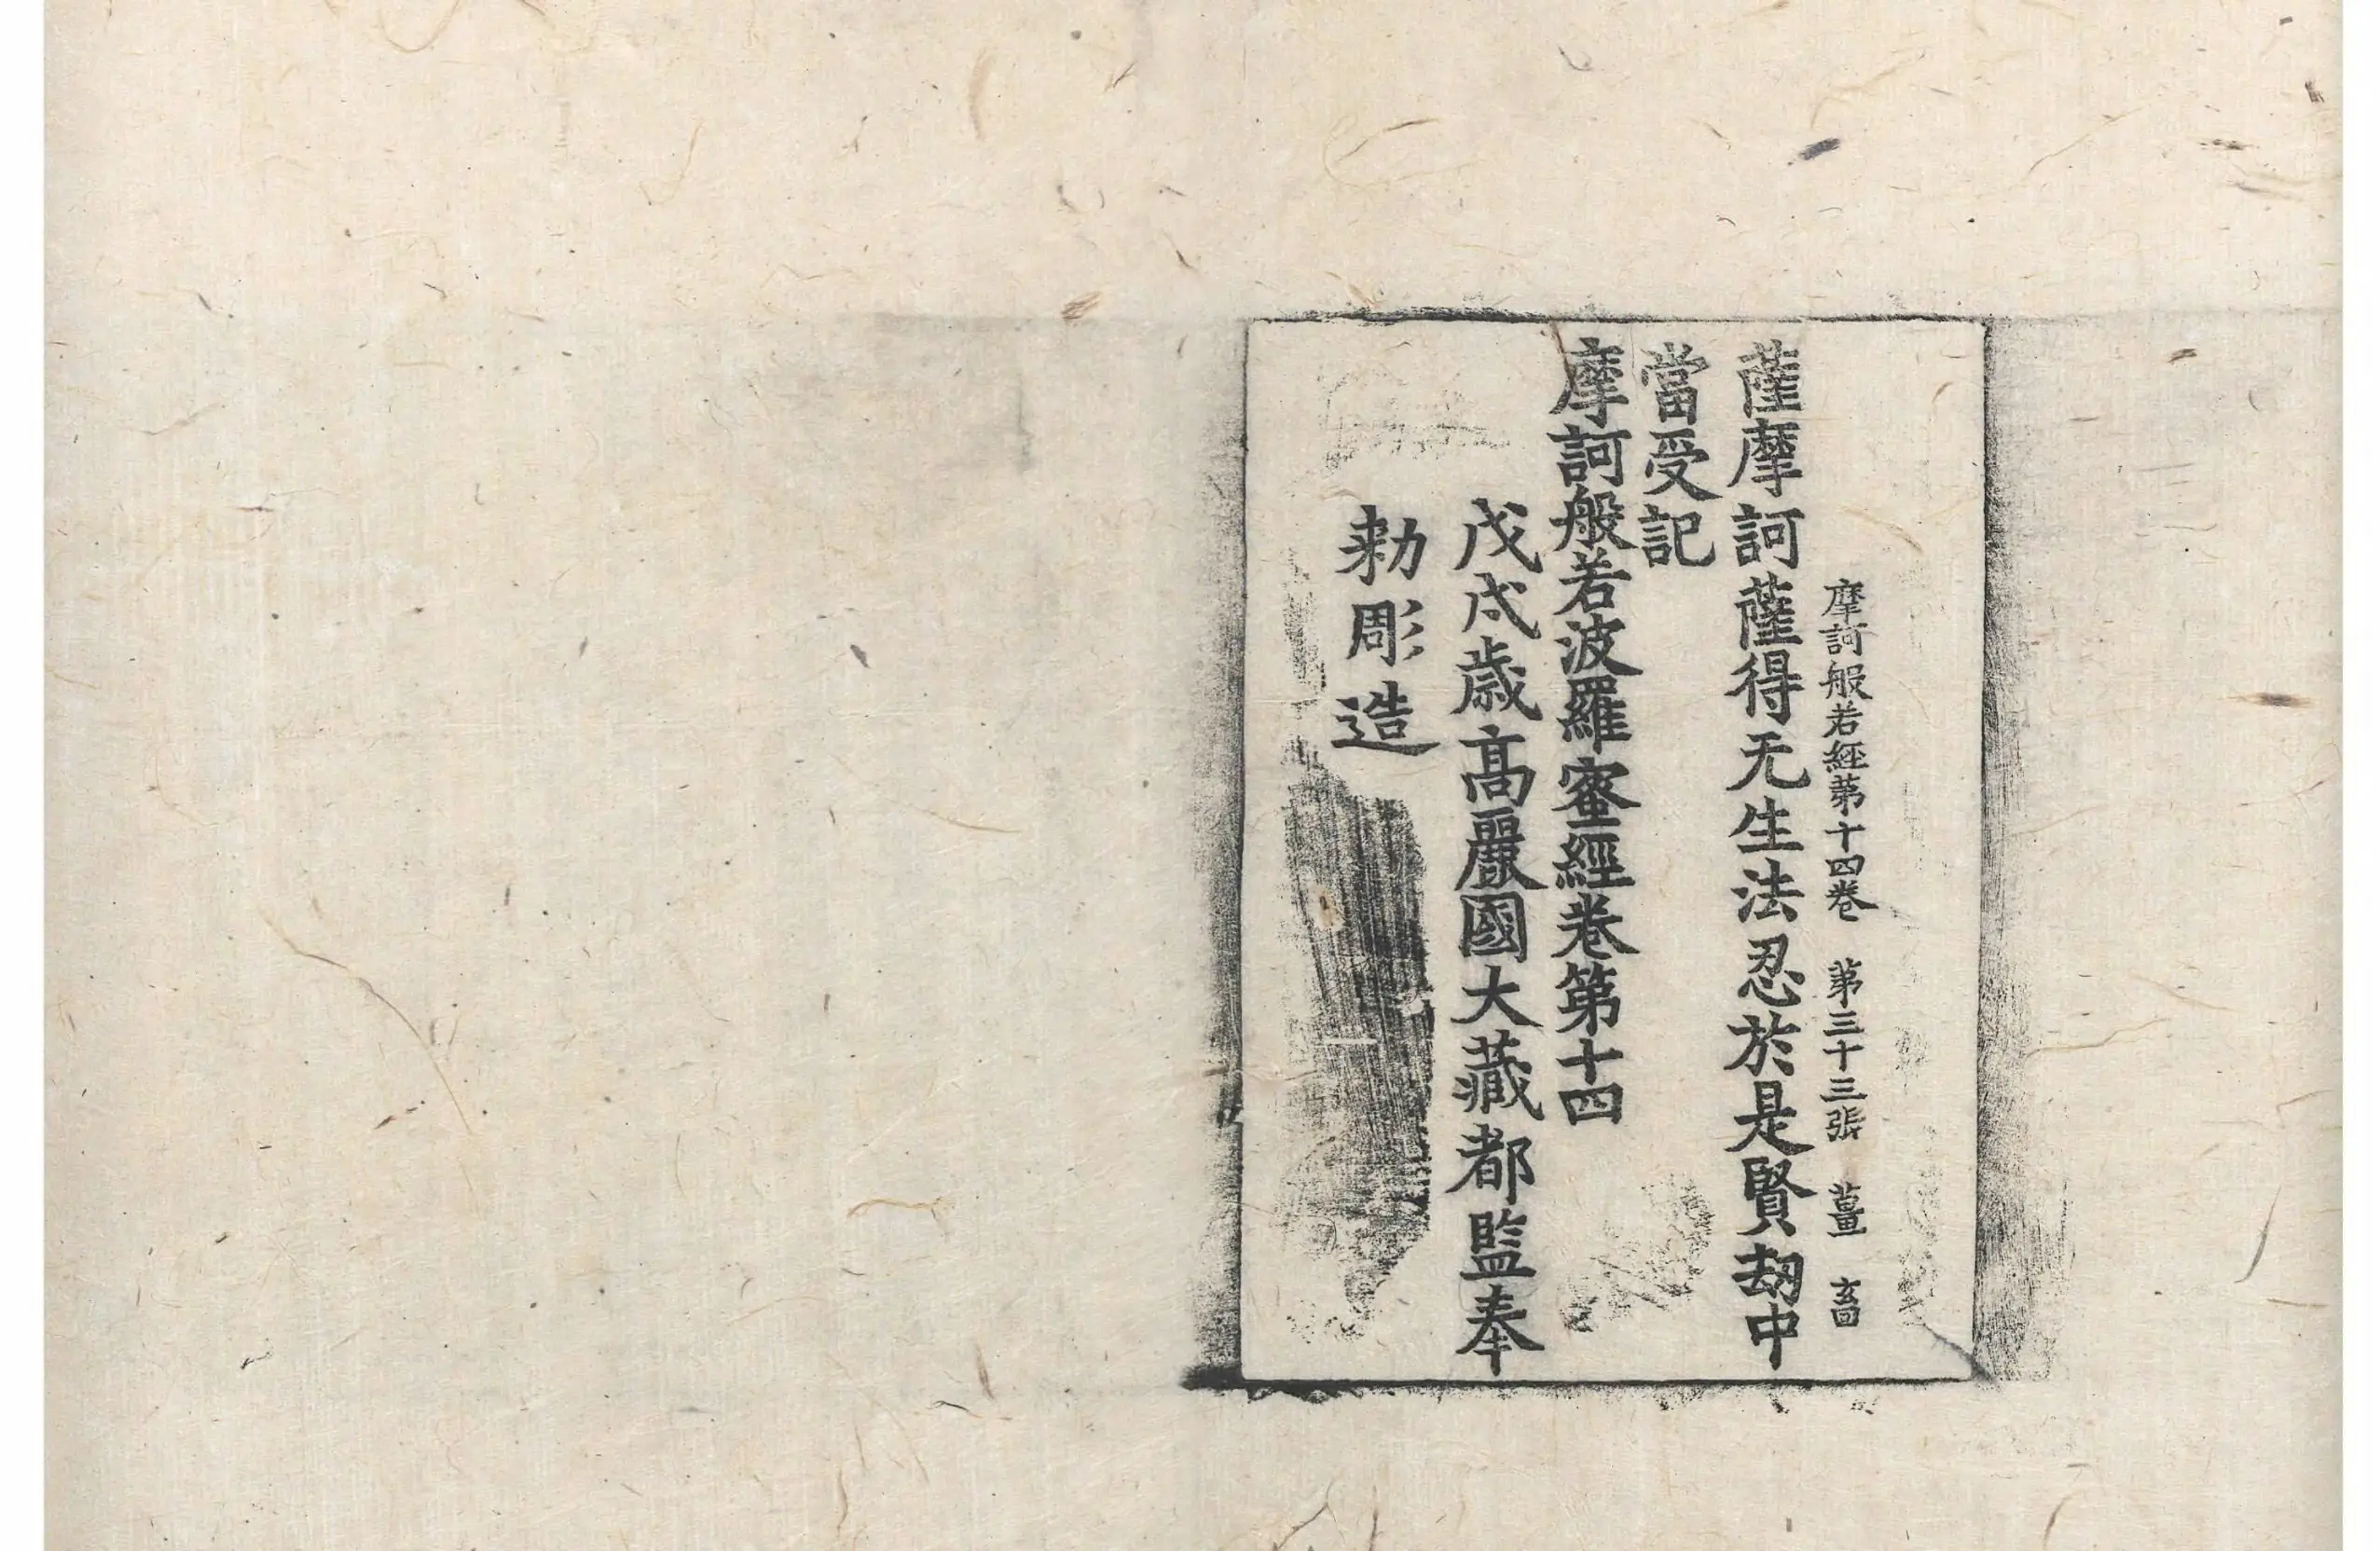 摩訶般若經第十四卷 第三十三張 薑
薩摩訶薩得无生法忍於是賢劫中
當受記
摩訶般若波羅蜜經卷第十四
戊戌歲高麗國大藏都監奉
勑彫造